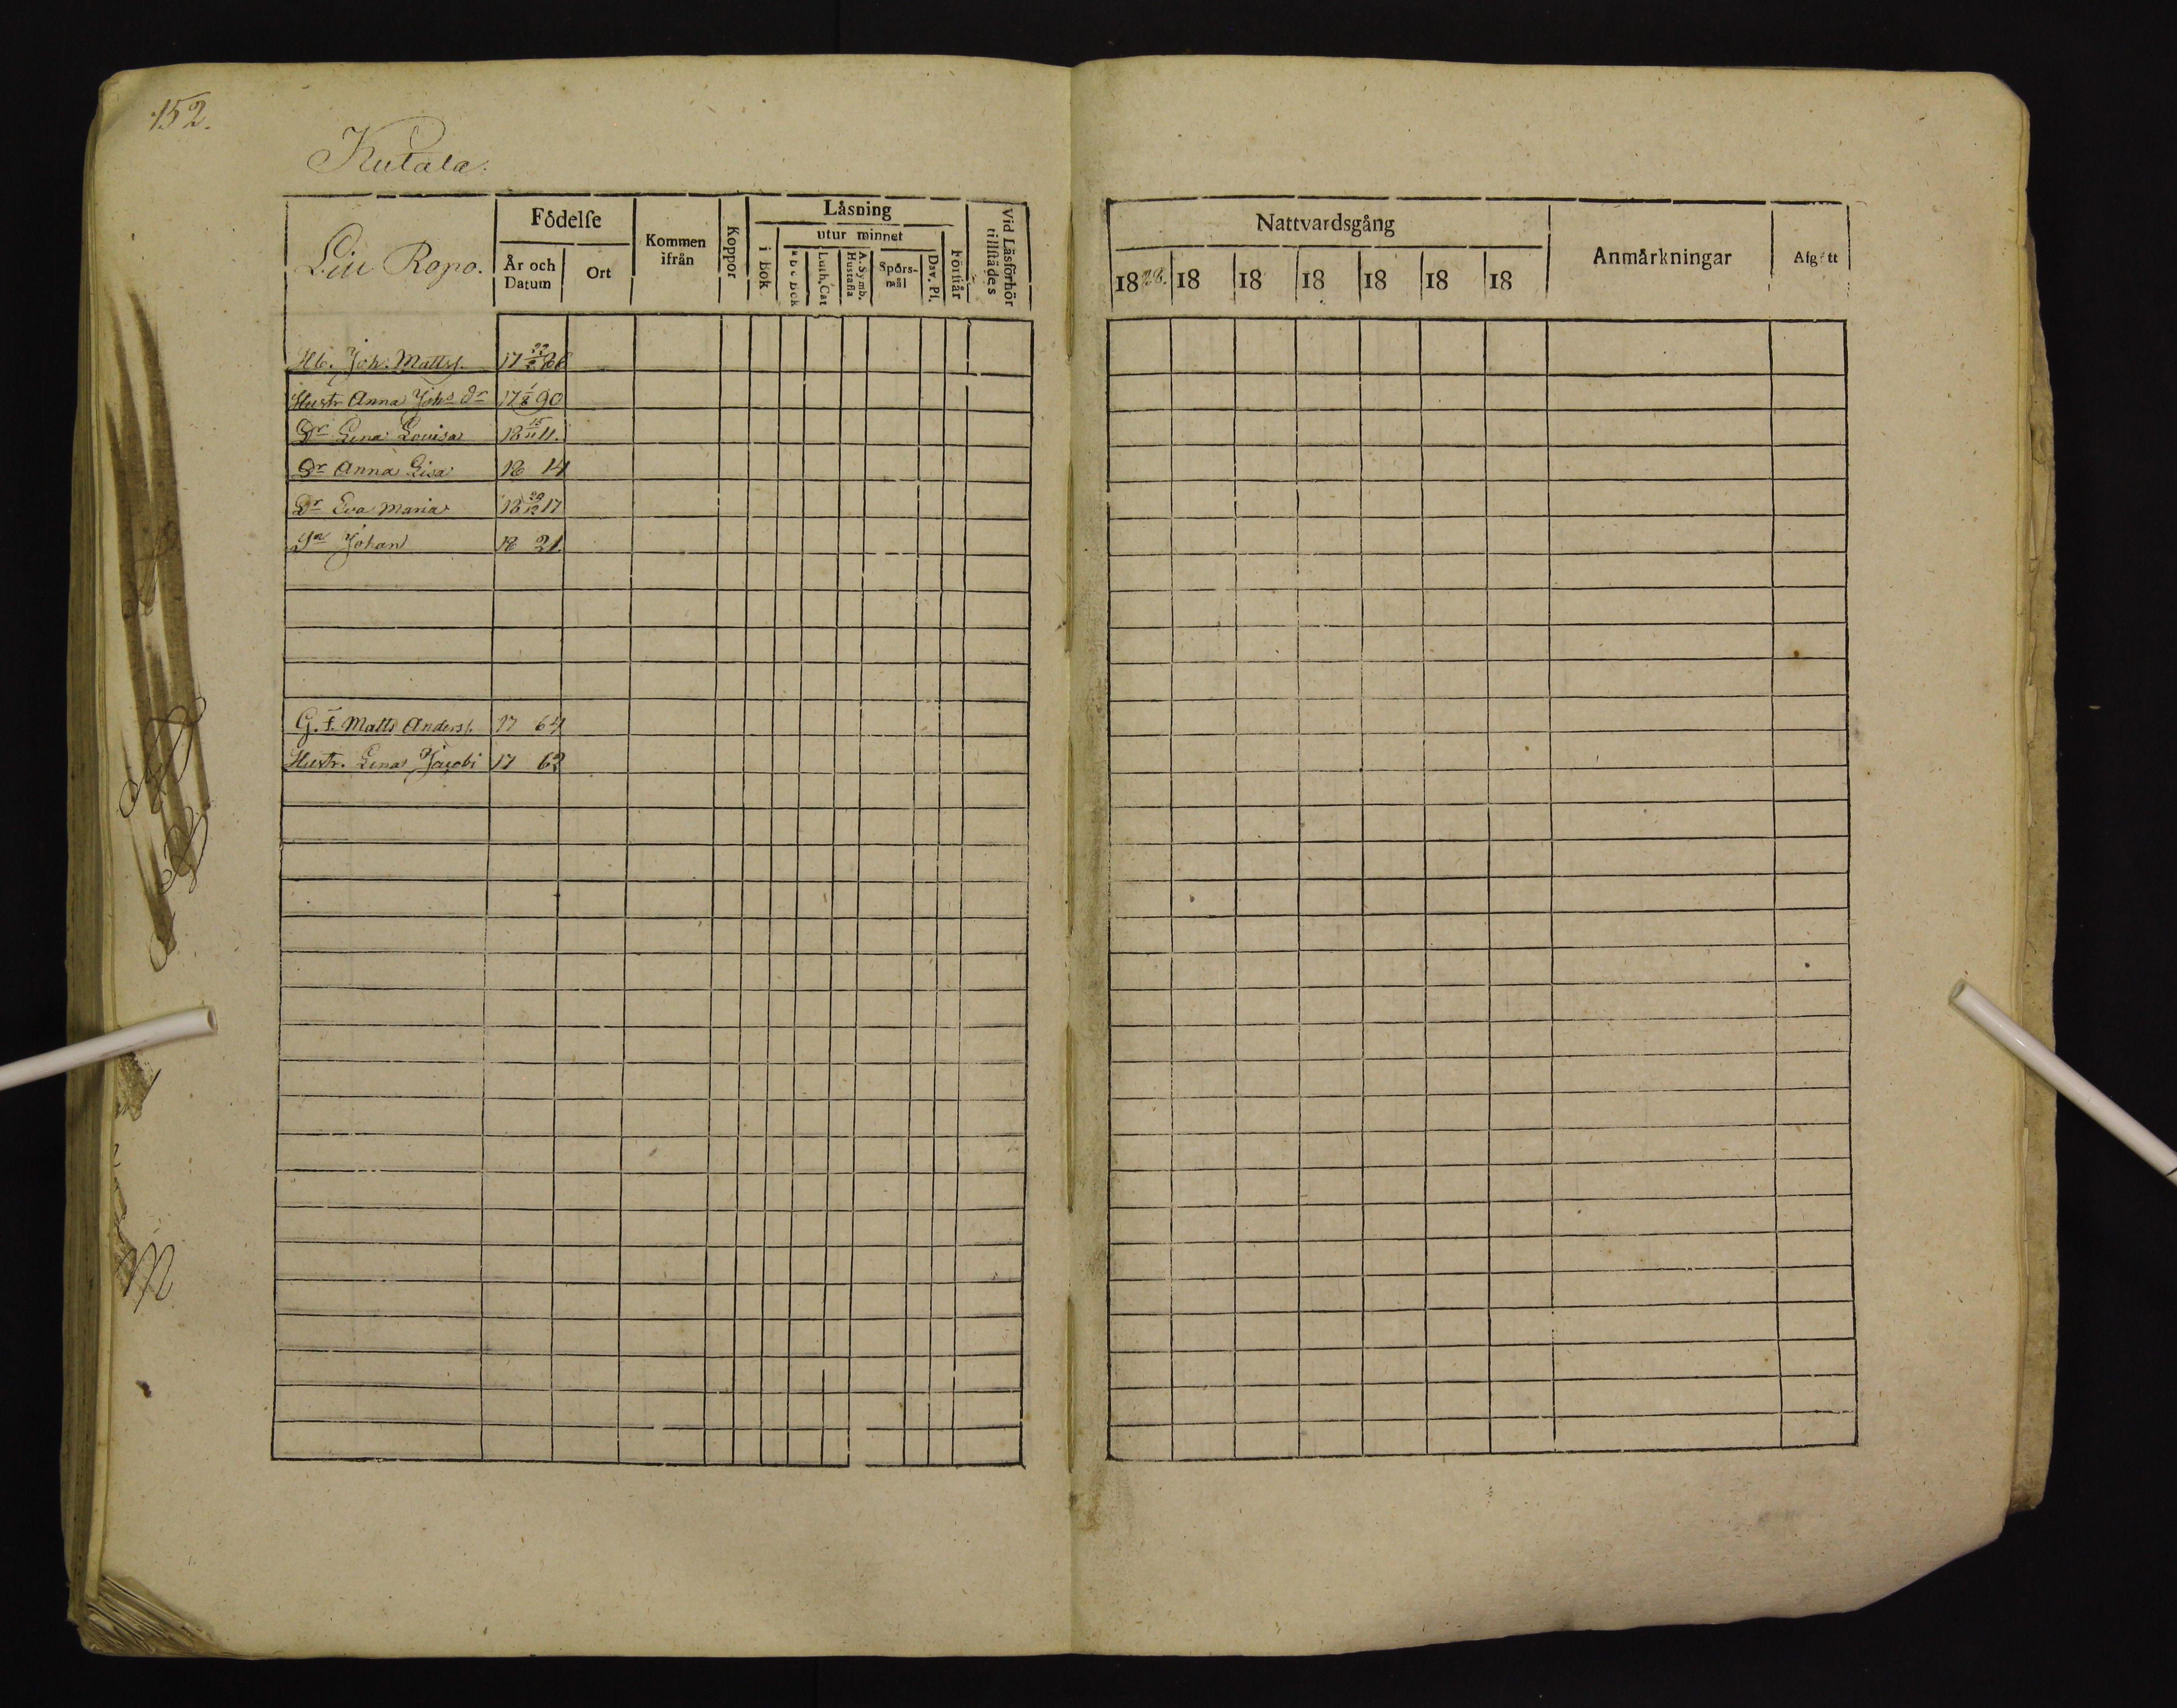 152.
Kutala.
Liu Ropo.
Födelse
År och Datum
Ort
Kommen ifrån
Koppor
Läsning
i bok
utur minnet
a b c bok
Luth. Cat
A. Symb. Hustafla
Spörs-mål
Dav. Ps.
Förstår
Vid Läsförhör tillstädes
Nattvardsgång
1828. 18 18 18 18 18 18
Anmärkningar
Afgått
Hb. Joh. Mattss. 17 22/2 86
Hustr Anna Johs dr 17 90
Dr Lena Lovisa 18 15/11 11.
Dr Anna Lisa 18 14
Dr Eva Maria 18 29/12 17
Sn Johan 18 21.
G. f. Matts Anderss. 17 64
Hustr. Lena Jacobi 17 63